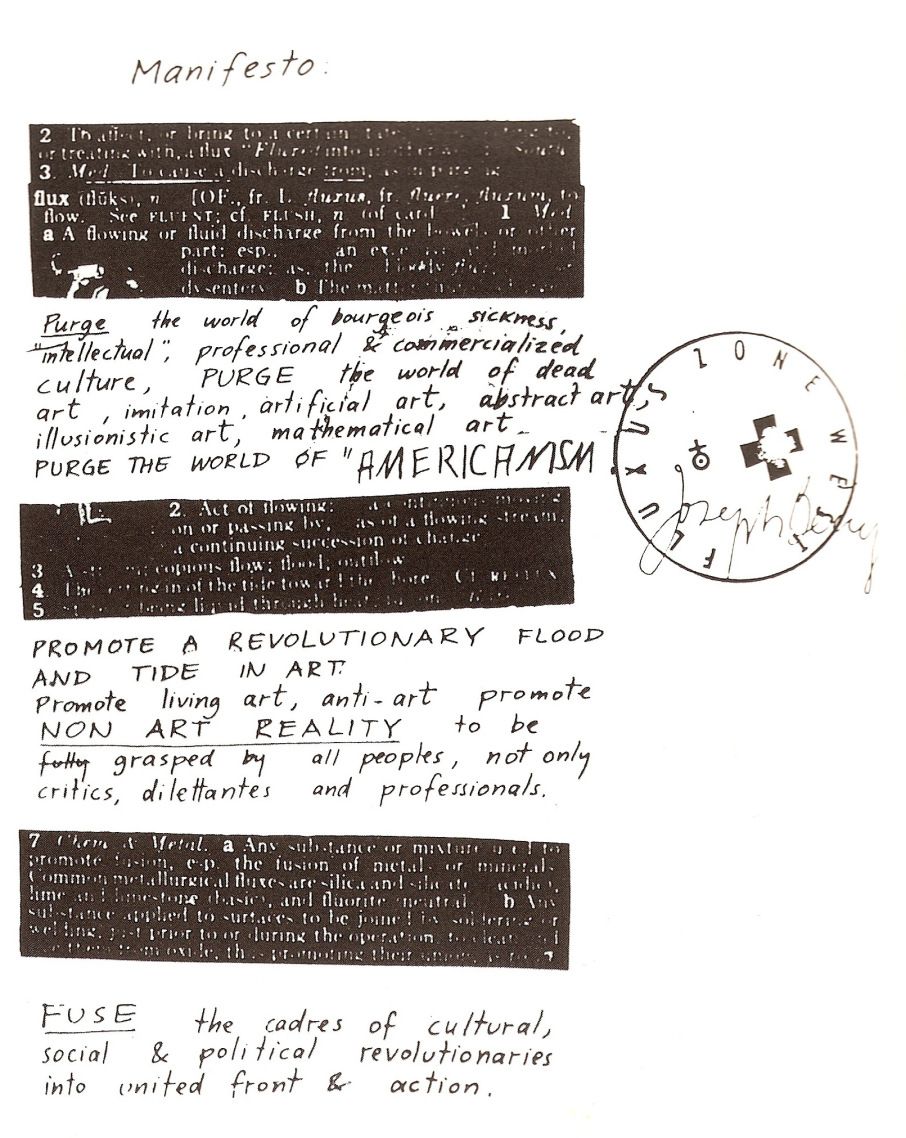 Manifesto:
2 To affect, or bring to a certain
or treating with, a flux "Fluxed into
3 Med. To cause a discharge from, as in purging
flux (flŭks), n. [OF., fr. L. fluxus, fr. fluere, fluxum, to
flow. See FLUENT; cf. FLUSH, n. (of cards 1 Med.
a A flowing or fluid discharge from the bowels or other
part: esp., an
discharge; as, the bloody flux,
dysentery. b The matter
Purge the world of bourgeois sickness,
"intellectual", professional & commercialized
culture, PURGE the world of dead
art, imitation, artificial art, abstract art,
illusionistic art, mathematical art
PURGE THE WORLD OF "AMERICANISM"
2. Act of flowing: a continuous moving
on or passing by, as of a flowing stream;
a continuing succession of change
3 copious flow; flood; outflow
4 The setting in of the tide toward the shore. Cf. REFLUX
5 being liquid through heat
PROMOTE A REVOLUTIONARY FLOOD
AND TIDE IN ART.
Promote living art, anti-art promote
NON ART REALITY to be
fully grasped by all peoples, not only
critics, dilettantes and professionals.
7 Chem. & Metal. a Any substance or mixture used to
promote fusion, esp. the fusion of metals or minerals.
Common metallurgical fluxes are silica and silicates (acidic),
lime and limestone (basic), and fluorite (neutral). b Any
substance applied to surfaces to be joined by soldering or
welding, just prior to or during the operation, to clean and
free them from oxide, thus promoting their union, as
FUSE the cadres of cultural,
social & political revolutionaries
into united front & action.
FLUXUS ZONE WEST
Joseph Beuys